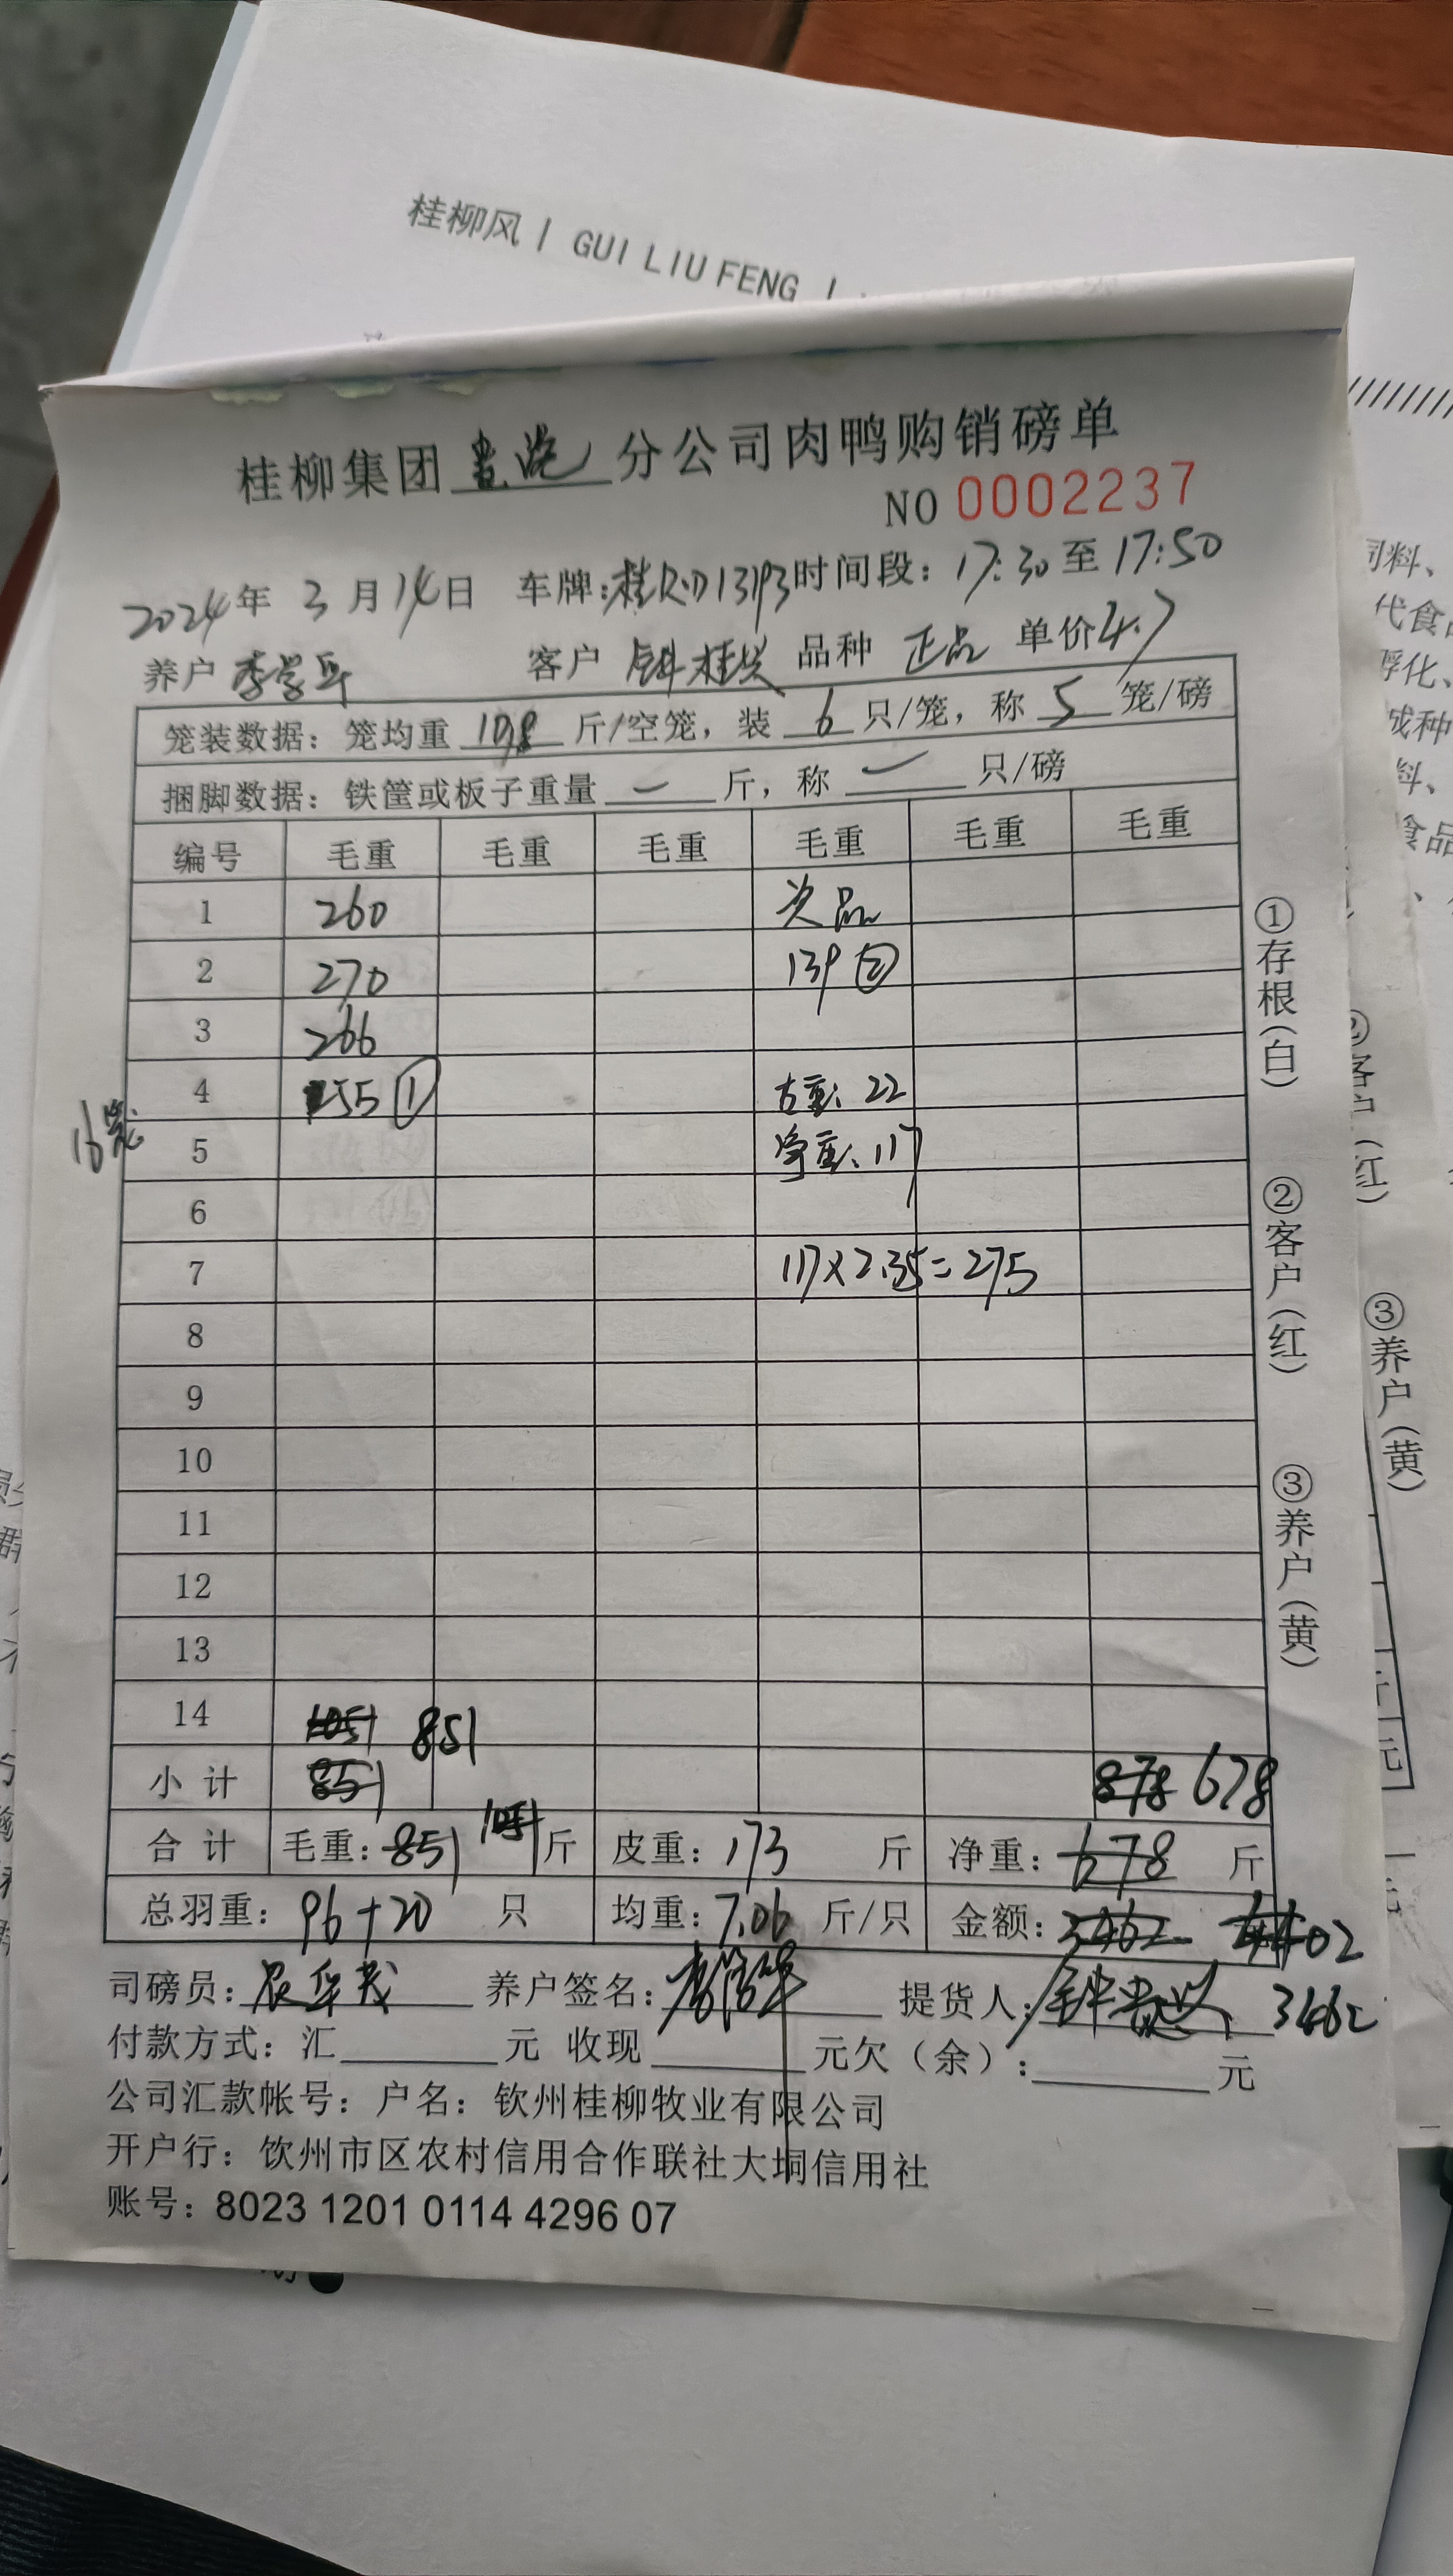 桂柳风 | GUI LIU FENG |
桂柳集团 分公司肉鸭购销磅单
NO 0002237
2024年 3月14日 车牌:桂 D13193 时间段: 17:30 至 17:50
养户 李 客户 钟桂 品种 正品 单价 4.7
笼装数据: 笼均重 10.8 斤/空笼, 装 6 只/笼, 称 5 笼/磅
捆脚数据: 铁筐或板子重量 — 斤, 称 — 只/磅
编号 毛重 毛重 毛重 毛重 毛重 毛重
1 260 次品
2 270 139 ②
3 266
4 55 ① 皮重: 22
16笼
5 净重: 117
6
7 117×2.35=275
8
9
10
11
12
13
14 1051 851
小计 851 878 678
合计 毛重: 851 1051 斤 皮重: 173 斤 净重: 678 斤
总羽重: 96+20 只 均重: 7.06 斤/只 金额: 3462 02
司磅员: 农华茂 养户签名: 李 提货人: 钟 3462
付款方式: 汇 元 收现 元欠(余): 元
公司汇款帐号: 户名: 钦州桂柳牧业有限公司
开户行: 饮州市区农村信用合作联社大垌信用社
账号: 8023 1201 0114 4296 07
①存根(白) ②客户(红) ③养户(黄)
③养户(黄)